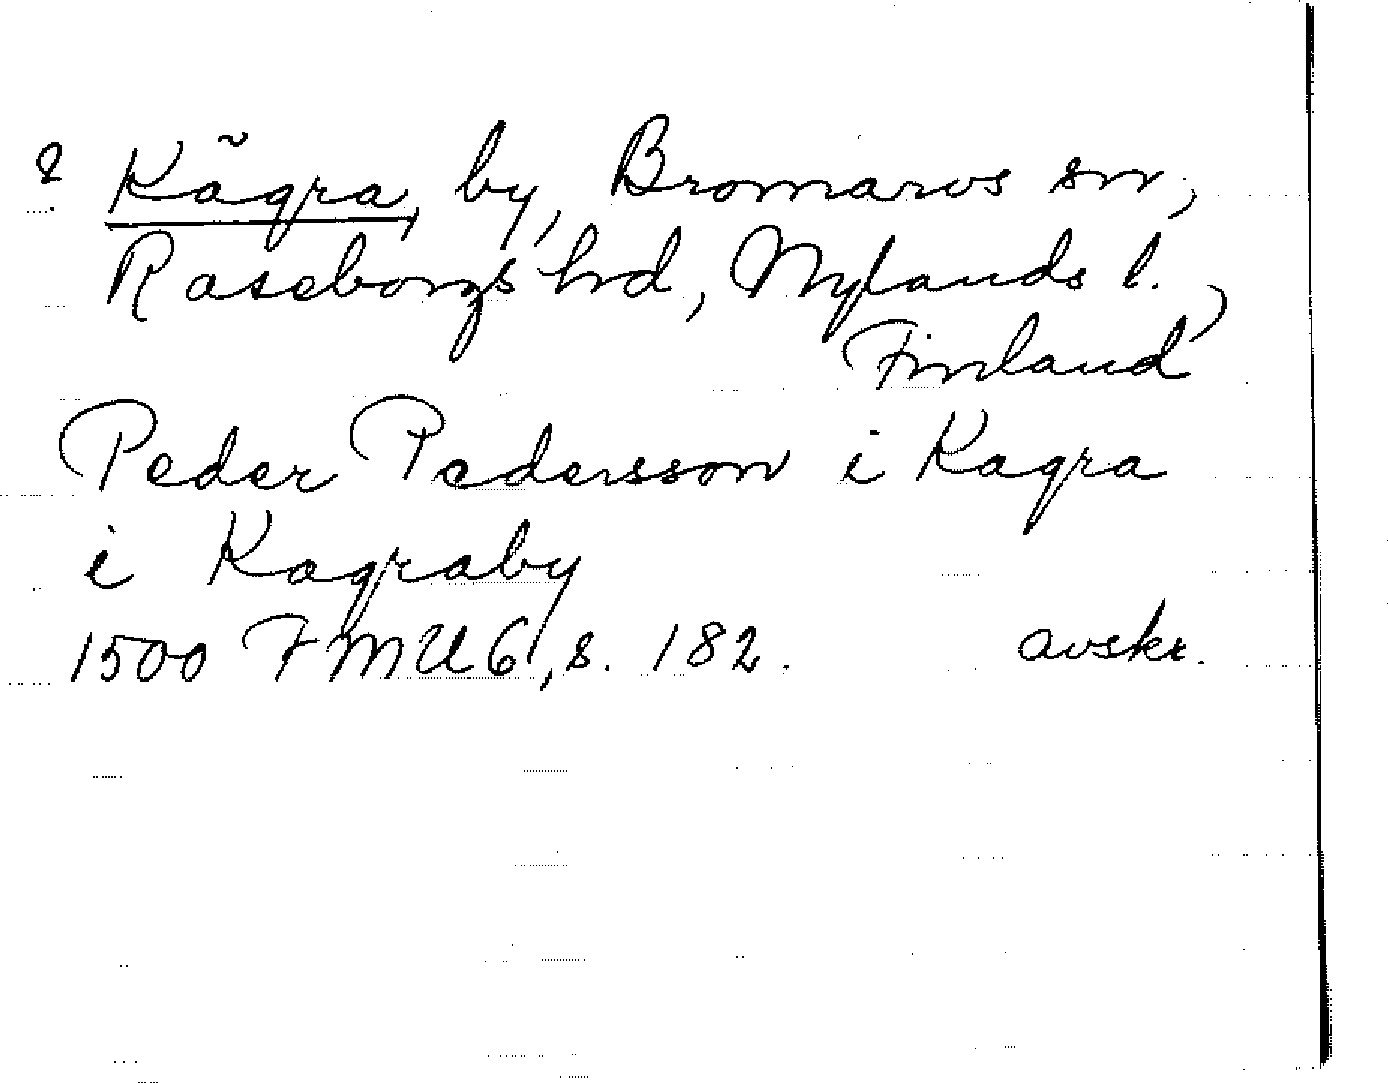 Kãgra, by, Bromarvs sn,
Raseborgs hd, Nylands l.,
Finland
Peder Pedersson i Kagra
i Kagraby
1500 FMU 6, s. 182. avskr.